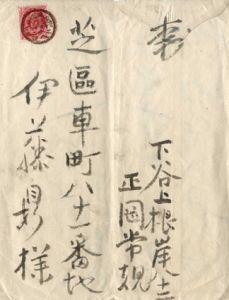 芝區車町八十一番地
伊藤様
下谷上根岸八十二
正岡常規